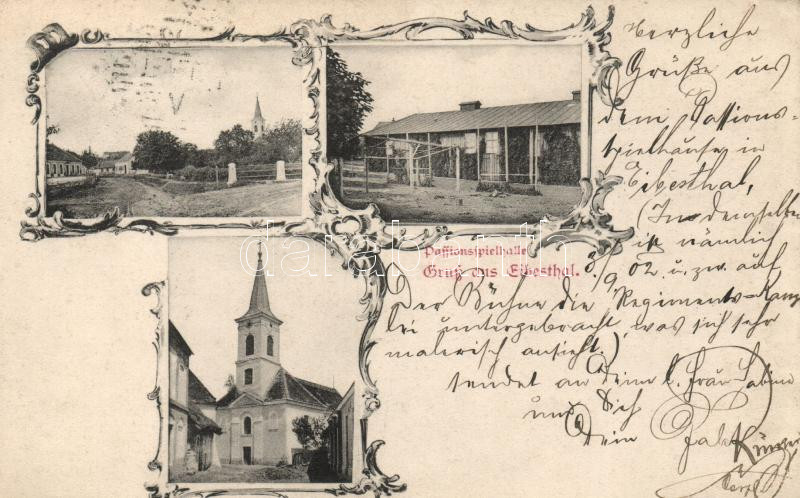 Passionsspielhalle
Gruß aus Eibesthal.
Herzliche
Grüße aus
dem Passions-
spielhause in
Eibesthal,
(In demselben
ist nämlich
8/9 02 u. zw. auf
Der Bühne die Regiments-Kanz
lei untergebracht, was sich sehr
malerisch ansieht)
sendet an Deine l. Frau
und Dich
Dein
darabanth.com